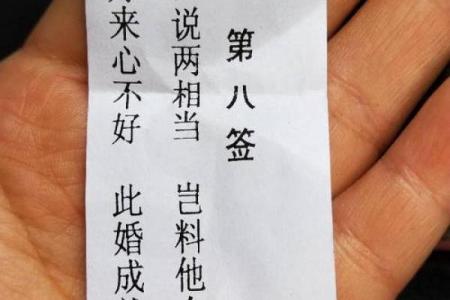 第八签
说两相当 岂料他
来心不好 此婚成